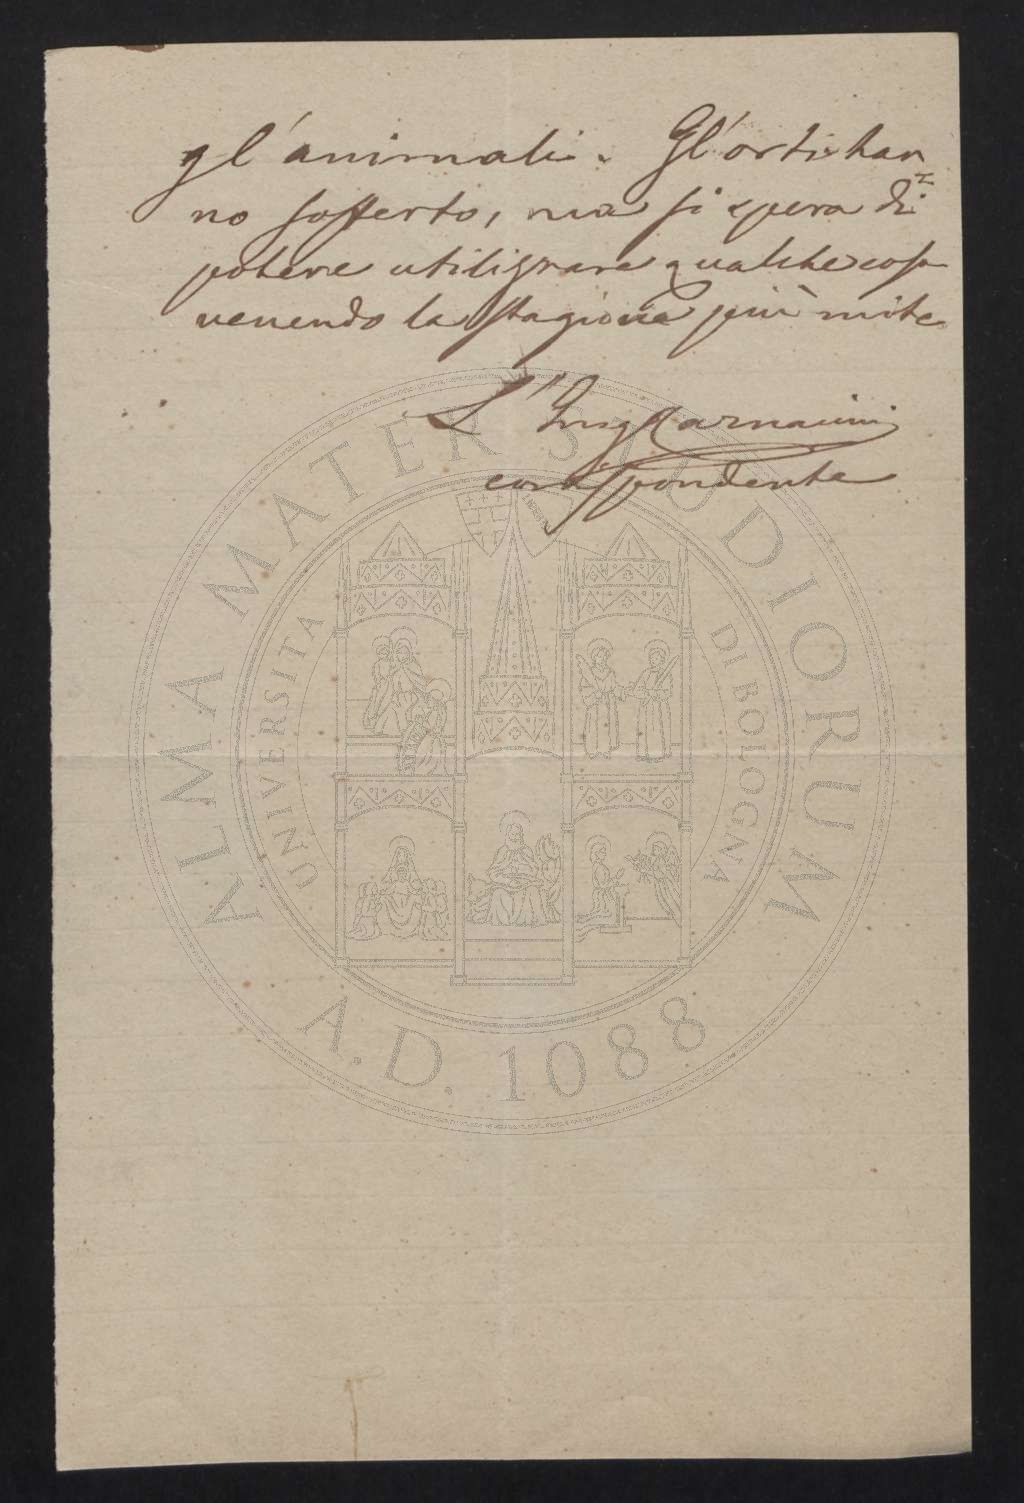 gl'animali. Gl'orti han
no sofferto, ma si spera di
potere utilizzare qualche cosa
venendo la stagione più mite
L'Ing Carnaccini
corrispondente
ALMA MATER STUDIORUM
UNIVERSITÀ DI BOLOGNA
A.D. 1088